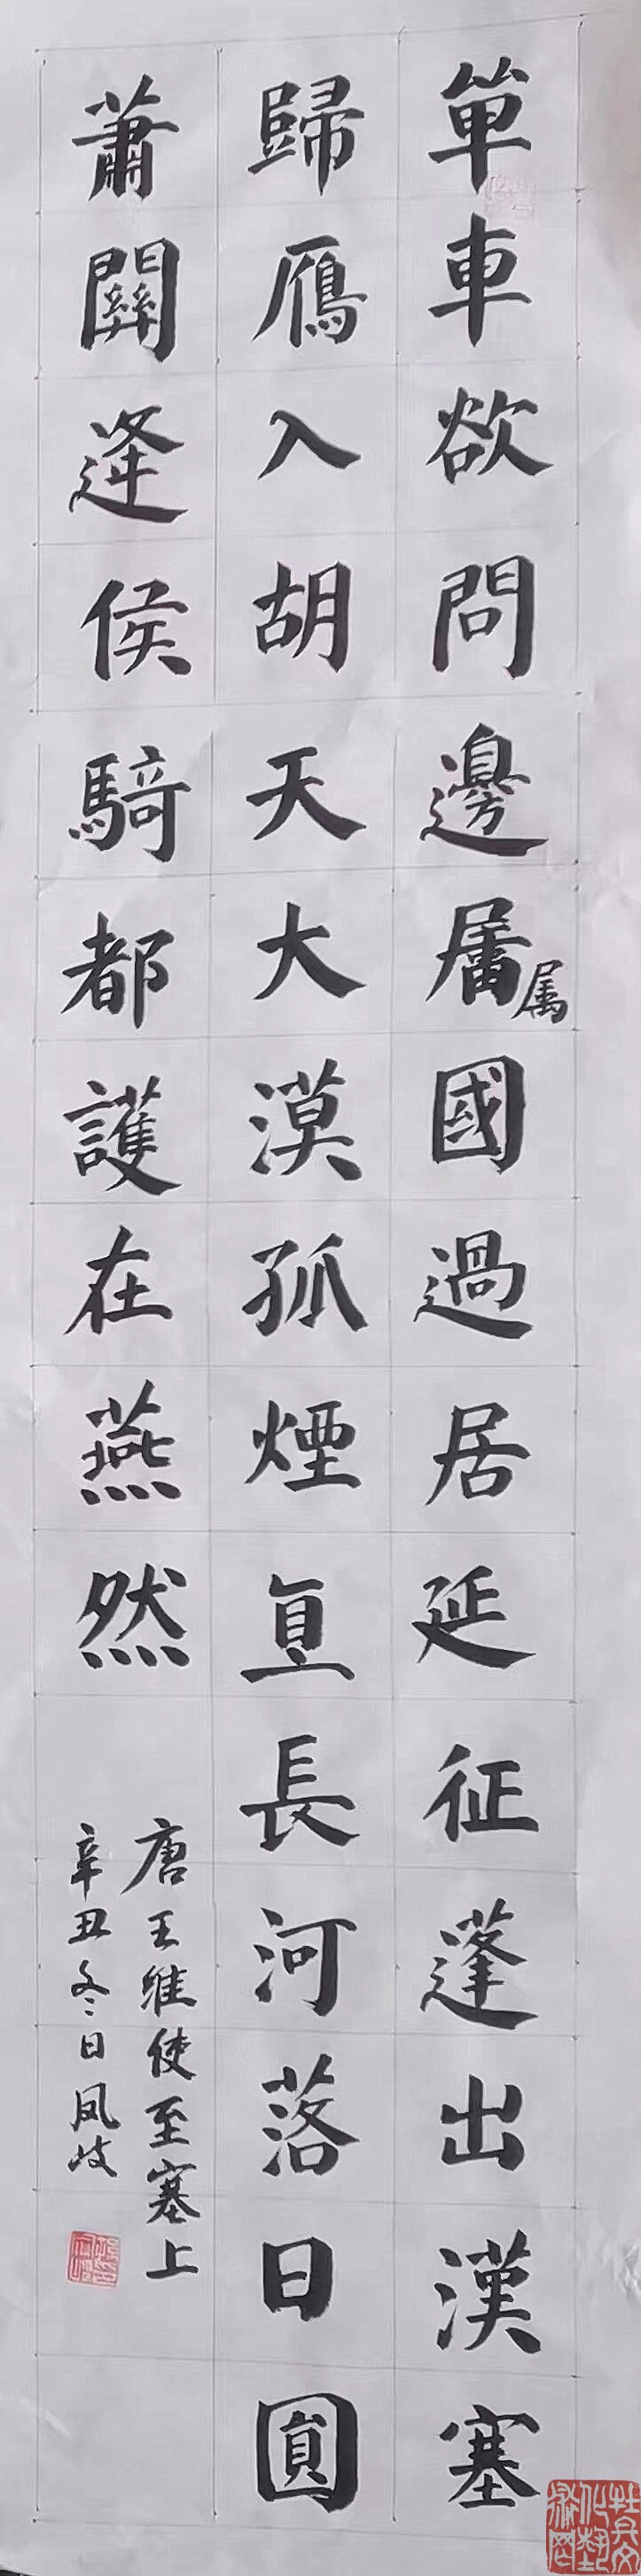 單車欲問邊屬國過居延征蓬出漢塞
属
歸鴈入胡天大漠孤煙直長河落日圓
蕭關逢侯騎都護在燕然
唐王維使至塞上
辛丑冬日凤岐